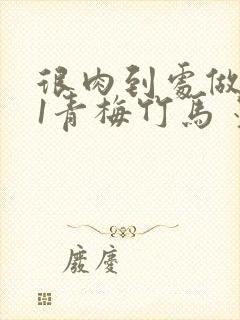 很肉到處做
1青梅竹馬
廢慶